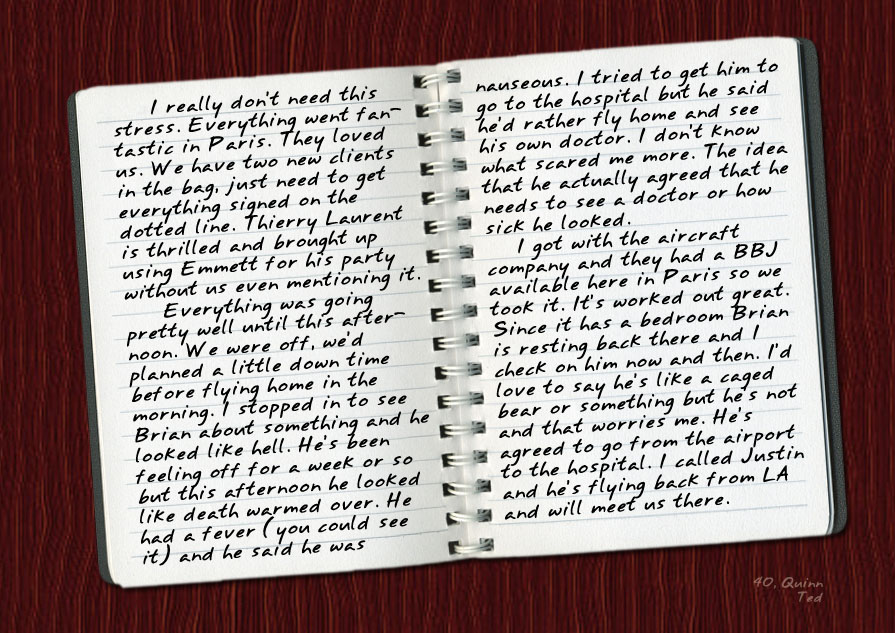 I really don't need this
stress. Everything went fan-
tastic in Paris. They loved
us. We have two new clients
in the bag, just need to get
everything signed on the
dotted line. Thierry Laurent
is thrilled and brought up
using Emmett for his party
without us even mentioning it.
Everything was going
pretty well until this after-
noon. We were off, we'd
planned a little down time
before flying home in the
morning. I stopped in to see
Brian about something and he
looked like hell. He's been
feeling off for a week or so
but this afternoon he looked
like death warmed over. He
had a fever (you could see
it) and he said he was
nauseous. I tried to get him to
go to the hospital but he said
he'd rather fly home and see
his own doctor. I don't know
what scared me more. The idea
that he actually agreed that he
needs to see a doctor or how
sick he looked.
I got with the aircraft
company and they had a BBJ
available here in Paris so we
took it. It's worked out great.
Since it has a bedroom Brian
is resting back there and I
check on him now and then. I'd
love to say he's like a caged
bear or something but he's not
and that worries me. He's
agreed to go from the airport
to the hospital. I called Justin
and he's flying back from LA
and will meet us there.
40, Quinn
Ted